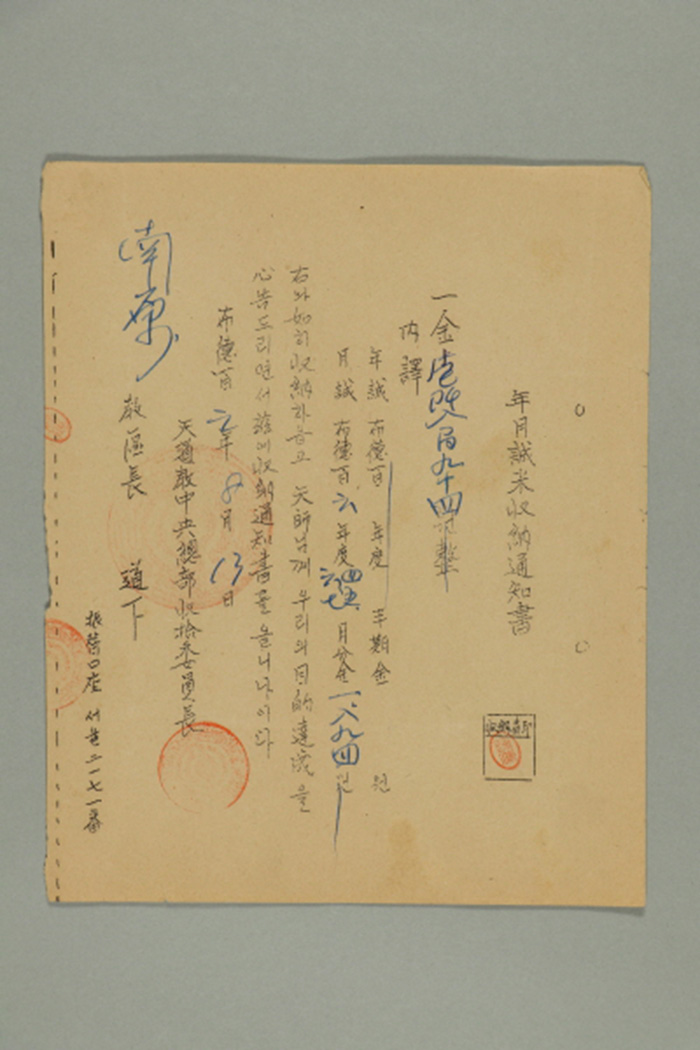 年月誠米收納通知書
一金壱阡八百九十四원整
內譯
年誠 布德百 年度 年期金 원
月誠 布德百六年度 四五六七 月分金 一八九四원
右와如히收納하옵고 天師님께 우리의目的達成을
心告드리면서 玆에收納通知書를올니나이다
布德百六年 8月 13日
天道敎中央總部收拾委員長
南原 敎區長 道下
振替口座 서울二一七一番